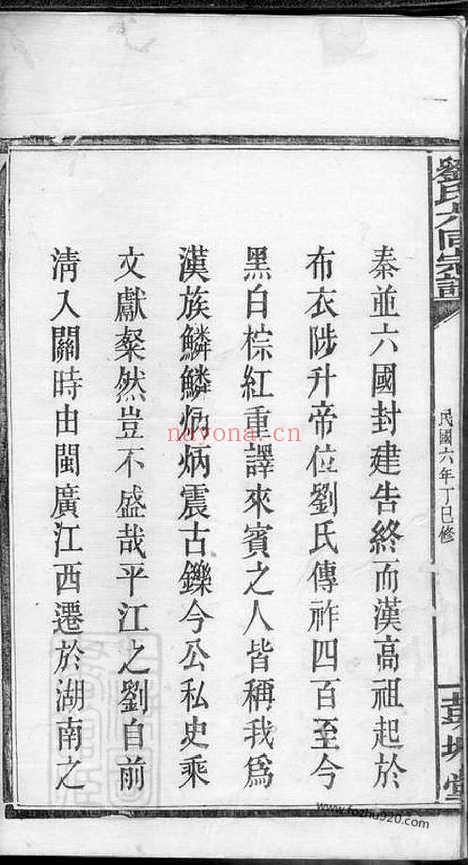 劉氏大同宗譜
民國六年丁巳修
彭城堂
秦並六國封建告終而漢高祖起於
布衣陟升帝位劉氏傳祚四百至今
黑白棕紅重譯來賓之人皆稱我為
漢族鱗鱗炳炳震古鑠今公私史乘
文獻粲然豈不盛哉平江之劉自前
清入關時由閩廣江西遷於湖南之
nayona.cn
www.fozhu920.com